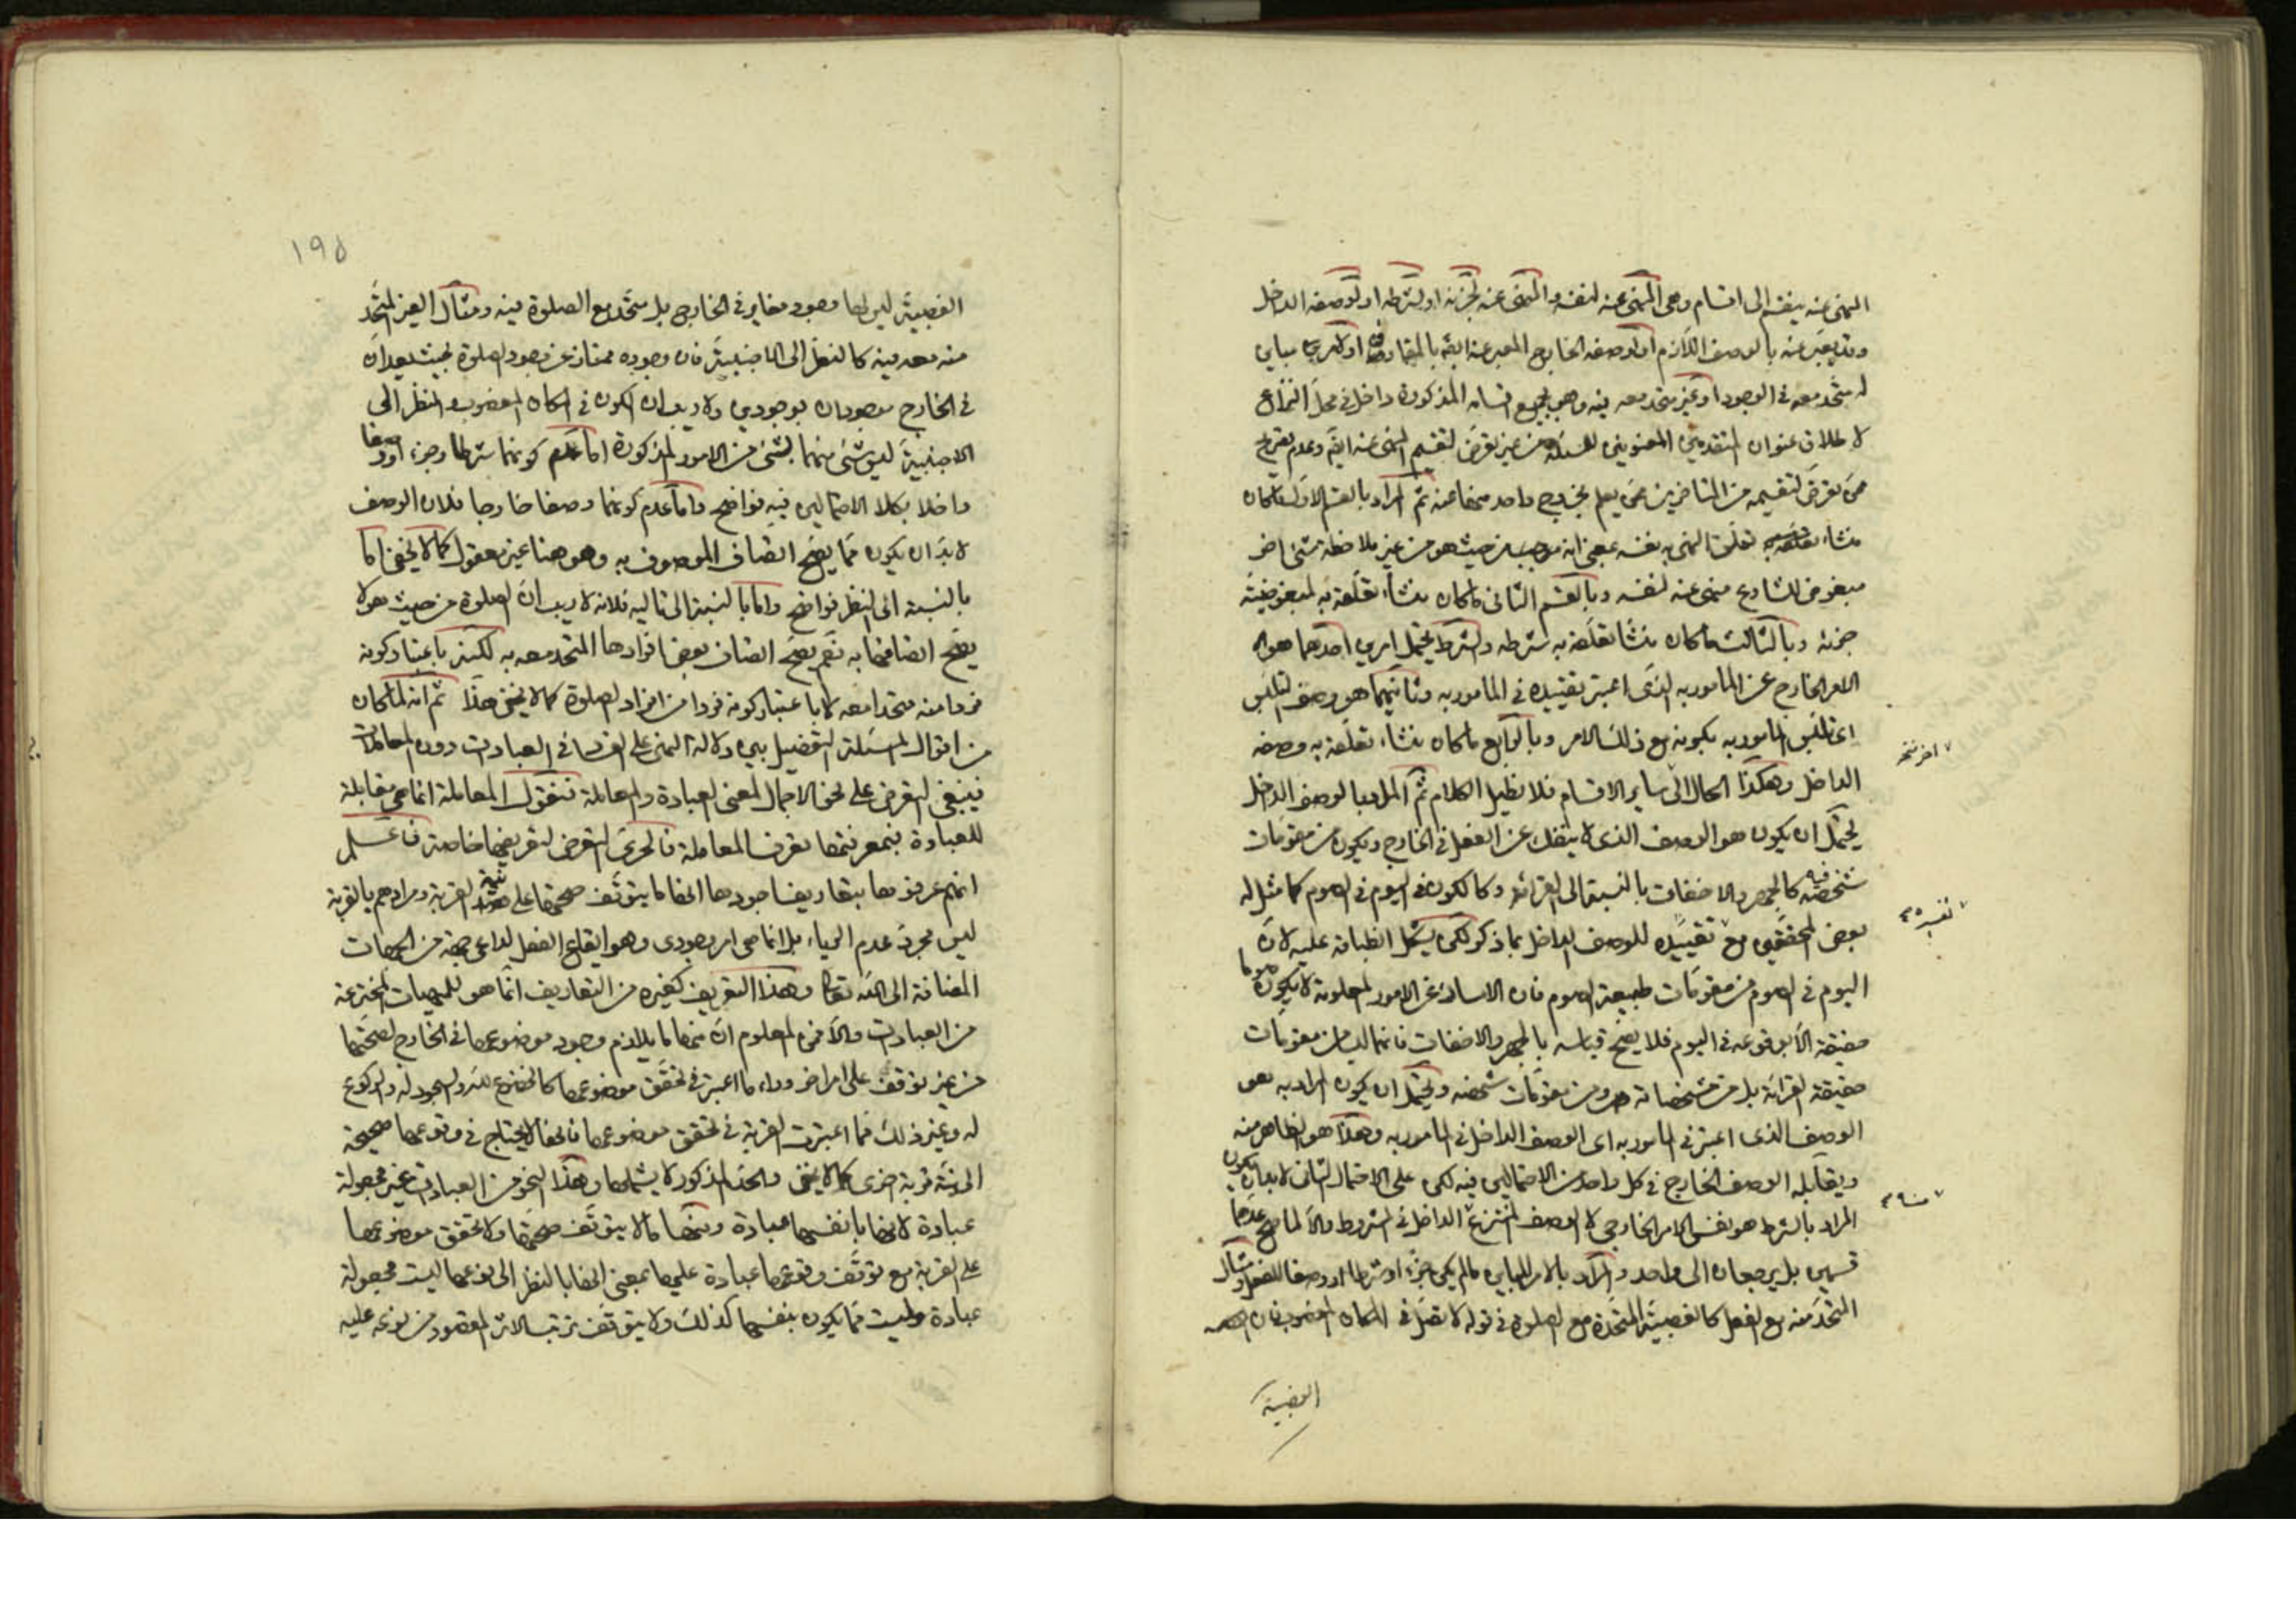 المنهى عنه ينقسم الى اقسام وهى المنهى عنه لنفسه والمنهى عنه لجزئه او لشرطه او لوصفه الداخل
وقد يعبر عنه بالوصف اللازم او لوصفه الخارج المعبر عنه ايضا بالمفارق او لامر مباين
له متحد معه فى الوجود او غير متحد معه فيه وهو بجميع اقسامه المذكورة داخل فى محل النزاع
لاطلاق عنوان المتقدمين المعنونين للمسئلة من غير تعرض لتقسيم المنهى عنه ايضا وعدم تصريح
ممن تعرض لتقسيمه من المتاخرين ممن يعلم بخروج واحد منها عنه ثم المراد بالقسم الاول ما كان
منشاء تعلق النهى به نفسه بمعنى انه من حيث هو من غير ملاحظة شئ اخر
مبغوض للشارع منهى عنه لنفسه وبالقسم الثانى ما كان منشاء تعلقه به لمبغوضية
جزئه وبالثالث ما كان منشا تعلقه به شرطه والشرط يحتمل امرين احدهما هو
الامر الخارج عن المامور به الذى اعتبر تقييده فى المامور به وثانيهما هو وصف التلبس
اى تلبس المامور به بكونه مع ذلك الامر وبالرابع ما كان منشاء تعلقه به وصفه
الداخل وهكذا الحال الى ساير الاقسام فلا نطيل الكلام ثم المراد بالوصف الداخل
يحتمل ان يكون هو الوصف الذى لا ينفك عن الفعل فى الخارج ويكون من مقومات
شخصه كالجهر والاخفات بالنسبة الى القرائة وكالكون فى اليوم فى الصوم كما مثل له
بعض المحققين مع تفسيره للوصف الداخل بما ذكر لكن يشكل انطباقه عليه لان
اليوم فى الصوم من مقومات طبيعة الصوم فان الامساك عن الامور المعلومة لا يكون صوما
حقيقة الا بوقوعه فى اليوم فلا يصح قياسه بالجهر والاخفات فانهما ليسا من مقومات
حقيقة القرائة بل من مشخصاته ومن مقومات شخصه ويحتمل ان يكون المراد به هو
الوصف الذى اعتبر فى المامور به اى الوصف الداخل فى المامور به وهذا هو الظاهر منه
ويقابله الوصف الخارج فى كل واحد من الاحتمالين فيه لكن على الاحتمال الثانى لا بد ان يكون
المراد بالشرط هو نفس الامر الخارجى لا الوصف المنتزع الداخل فى المشروط والا لما صح عدهما
قسمين بل يرجعان الى واحد والمراد بالامر المباين ما لم يكن جزء او شرطا او وصفا للفعل ومثال
المتحد منه مع الفعل كالغصبية المتحدة مع الصلوة فى قوله لا تصل فى المكان المغصوب فان
الغصبية
اخر نسخه
تفسيره
١٩٥
الغصبية ليس لها وجود مغاير فى الخارج بل متحد مع الصلوة فيه ومثال الغير المتحد
منه معه فيه كالنظر الى الاجنبية فان وجوده ممتاز عن وجود الصلوة بحيث يعدان
فى الخارج موجودان بوجودين ولا ريب ان الكون فى المكان المغصوب والنظر الى
الاجنبية ليس شئ منهما بشئ من الامور المذكورة اما عدم كونهما شرطا وجزء او وصفا
داخلا بكلا الاحتمالين فيه فواضح واما عدم كونهما وصفا خارجا فلان الوصف
لا بد ان يكون مما يصح اتصاف الموصوف به وهو هنا غير معقول كما لا يخفى اما
بالنسبة الى النظر فواضح واما بالنسبة الى تاليه فلانه لا ريب ان الصلوة من حيث هو لا
يصح اتصافها به نعم يصح اتصاف بعض افرادها المتحد معه به لكنه باعتبار كونه
فردا منه متحدا معه لا باعتبار كونه فردا من افراد الصلوة كما لا يخفى هذا ثم انه لما كان
من اقوال المسئلة التفصيل بين دلالة النهى على الفساد فى العبادات دون المعاملات
فينبغى التعرض على نحو الاجمال لمعنى العبادة والمعاملة فنقول المعاملة انما هى مقابلة
للعبادة فبمعرفتها تعرف المعاملة فالحرى التعرض لتعريفها خاصة فاعلم
انهم عرفوها بتعاريف اجودها انها ما يتوقف صحتها على نية القربة ومرادهم بالقربة
ليس مجرد عدم الرياء بل انما هى امر وجودى وهو ايقاع الفعل لداعى جهة من الجهات
المضافة الى الله تعالى وهذا التعريف كغيره من التعاريف انما هو للمهيات المخترعة
من العبادات والا فمن المعلوم ان منها ما يلازم وجود موضوعها فى الخارج لصحتها
من غير توقف على امر اخر وراء ما اعتبر فى تحقق موضوعها كالخضوع لله والسجود له والركوع
له وغير ذلك مما اعتبرت القربة فى تحقق موضوعها فانها لا يحتاج فى وقوعها صحيحة
الى نية قربة اخرى كما لا يخفى والحد المذكور لا يشملها وهذا النحو من العبادات غير مجعولة
عبادة لانها بانفسها عبادة ومنها ما لا يتوقف صحتها ولا تحقق موضوعها
على القربة مع توقف وقوعها عبادة عليها بمعنى انها بالنظر الى نوعها ليست مجعولة
عبادة وليست مما يكون بنفسها كذلك ولا يتوقف ترتب الاثر المقصود من نوعه عليه